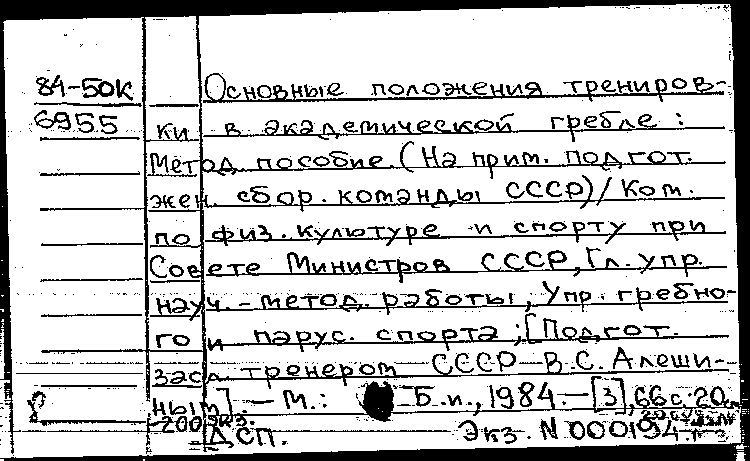 84-50К
6955
Основные положения трениров-
ки в академической гребле :
Метод. пособие (На прим. подгот.
жен. сбор. команды СССР) / Ком.
по физ. культуре и спорту при
Совете Министров СССР, Гл. упр.
науч.-метод. работы, Упр. гребно-
го и парус. спорта ; [Подгот.
засл. тренером СССР В.С. Алеши-
ным] — М.: Б.и., 1984. — [3], 66 с. 20
200 экз.
ДСП. Экз. N 000194.